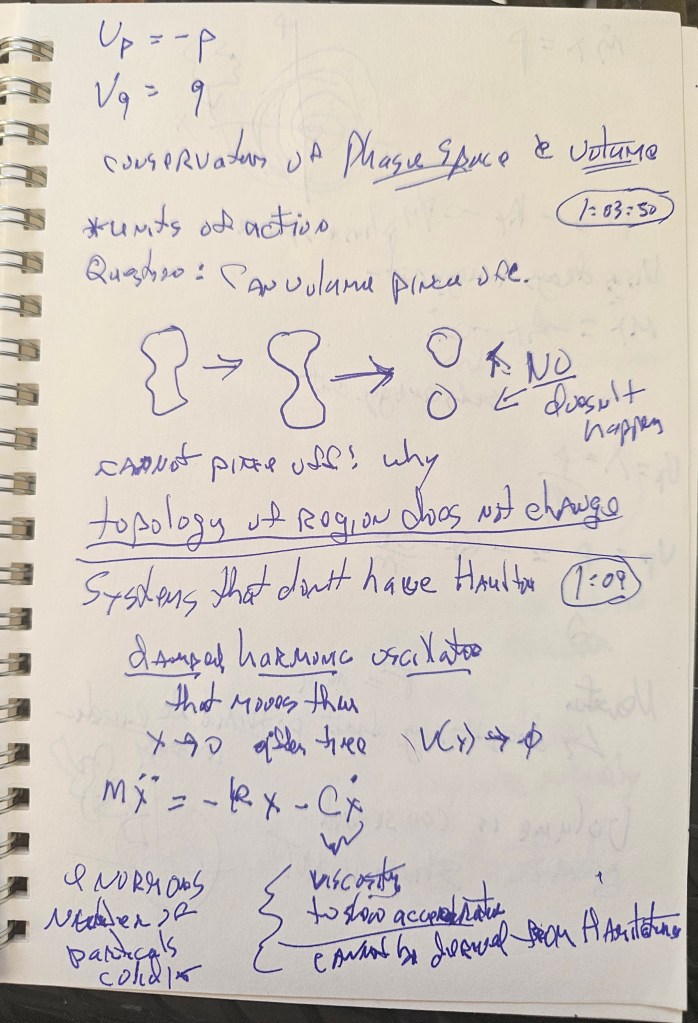 Up = -p
Vq = q
conservation of Phase Space & Volume
1:03:50
*units of action
Question: Can volume pince off.
NO
doesn't
happen
cannot pince off! why
topology of Region does not change
Systems that don't have Hamilton
1:09
damped harmonic oscillator
that moves thru
x → 0 after time V(x) → 0
mẍ = -kx - Cẋ
viscosity
to slow acceleration
cannot be derived from Hamiltonian
enormous
number of
particals